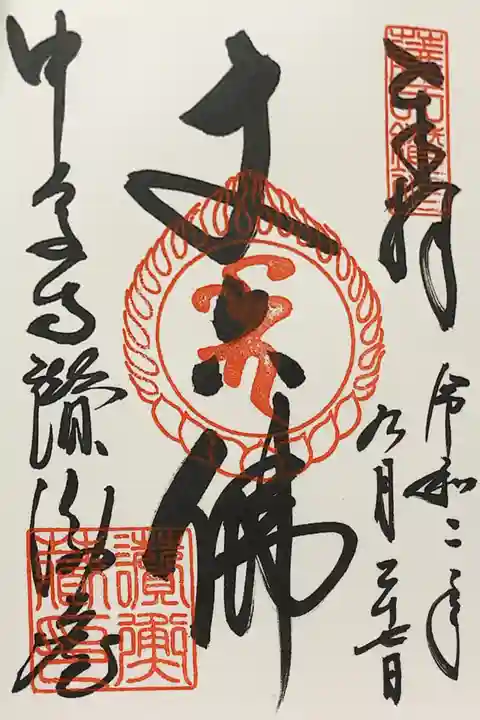 奉拝
令和二年
九月二十七日
丈六佛
中尊寺讃衡蔵
讃衡
蔵印